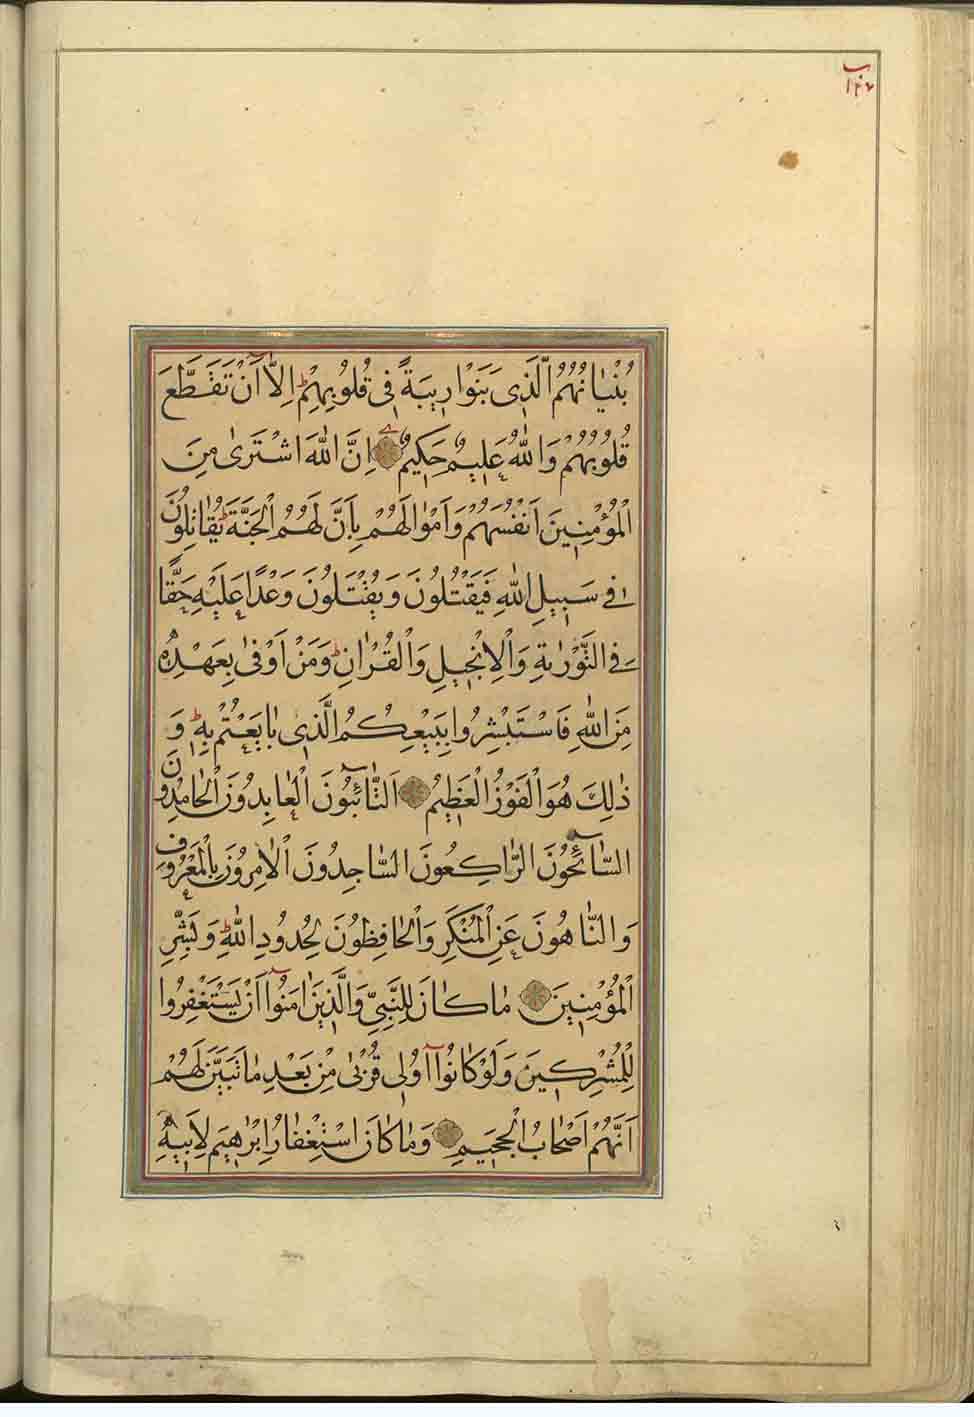 ب
۱۴۶
بُنْيَانُهُمُ الَّذِی بَنَوْا رِيبَةً فِی قُلُوبِهِمْ اِلَّا اَنْ تَقَطَّعَ
قُلُوبُهُمْ وَاللّٰهُ عَلِيمٌ حَكِيمٌ اِنَّ اللّٰهَ اشْتَرٰی مِنَ
الْمُؤْمِنِينَ اَنْفُسَهُمْ وَاَمْوٰالَهُمْ بِاَنَّ لَهُمُ الْجَنَّةَ يُقٰاتِلُونَ
فِی سَبِيلِ اللّٰهِ فَيَقْتُلُونَ وَيُقْتَلُونَ وَعْدًا عَلَيْهِ حَقًّا
فِی التَّوْرٰيةِ وَالْاِنْجِيلِ وَالْقُرْاٰنِ وَمَنْ اَوْفٰی بِعَهْدِهِ
مِنَ اللّٰهِ فَاسْتَبْشِرُوا بِبَيْعِكُمُ الَّذِی بٰايَعْتُمْ بِهِ وَ
ذٰلِكَ هُوَ الْفَوْزُ الْعَظِيمُ اَلتّٰائِبُونَ الْعٰابِدُونَ الْحٰامِدُونَ
السّٰائِحُونَ الرّٰاكِعُونَ السّٰاجِدُونَ الْاٰمِرُونَ بِالْمَعْرُوفِ
وَالنّٰاهُونَ عَنِ الْمُنْكَرِ وَالْحٰافِظُونَ لِحُدُودِ اللّٰهِ وَبَشِّرِ
الْمُؤْمِنِينَ مٰا كٰانَ لِلنَّبِیِّ وَالَّذِينَ اٰمَنُوا اَنْ يَسْتَغْفِرُوا
لِلْمُشْرِكِينَ وَلَوْ كٰانُوا اُولِی قُرْبٰی مِنْ بَعْدِ مٰا تَبَيَّنَ لَهُمْ
اَنَّهُمْ اَصْحٰابُ الْجَحِيمِ وَمٰا كٰانَ اسْتِغْفٰارُ اِبْرٰهِيمَ لِاَبِيهِ